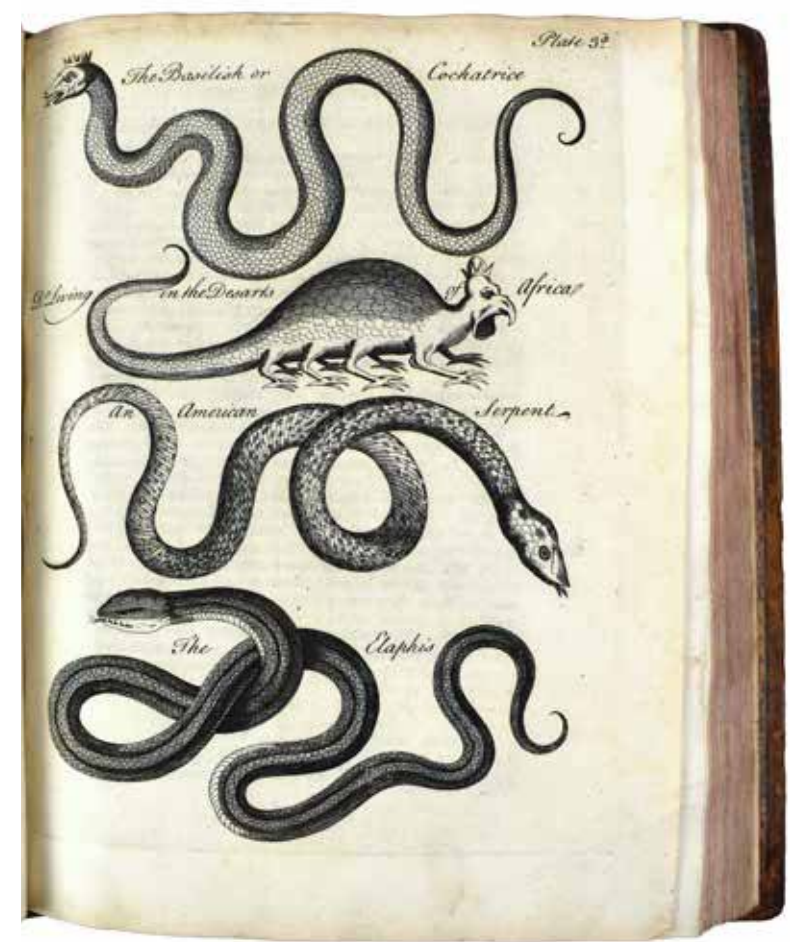 Plate 3ᵈ
The Basilisk or Cockatrice
Dº living in the Desarts of Africa
An American Serpent
The Elaphis